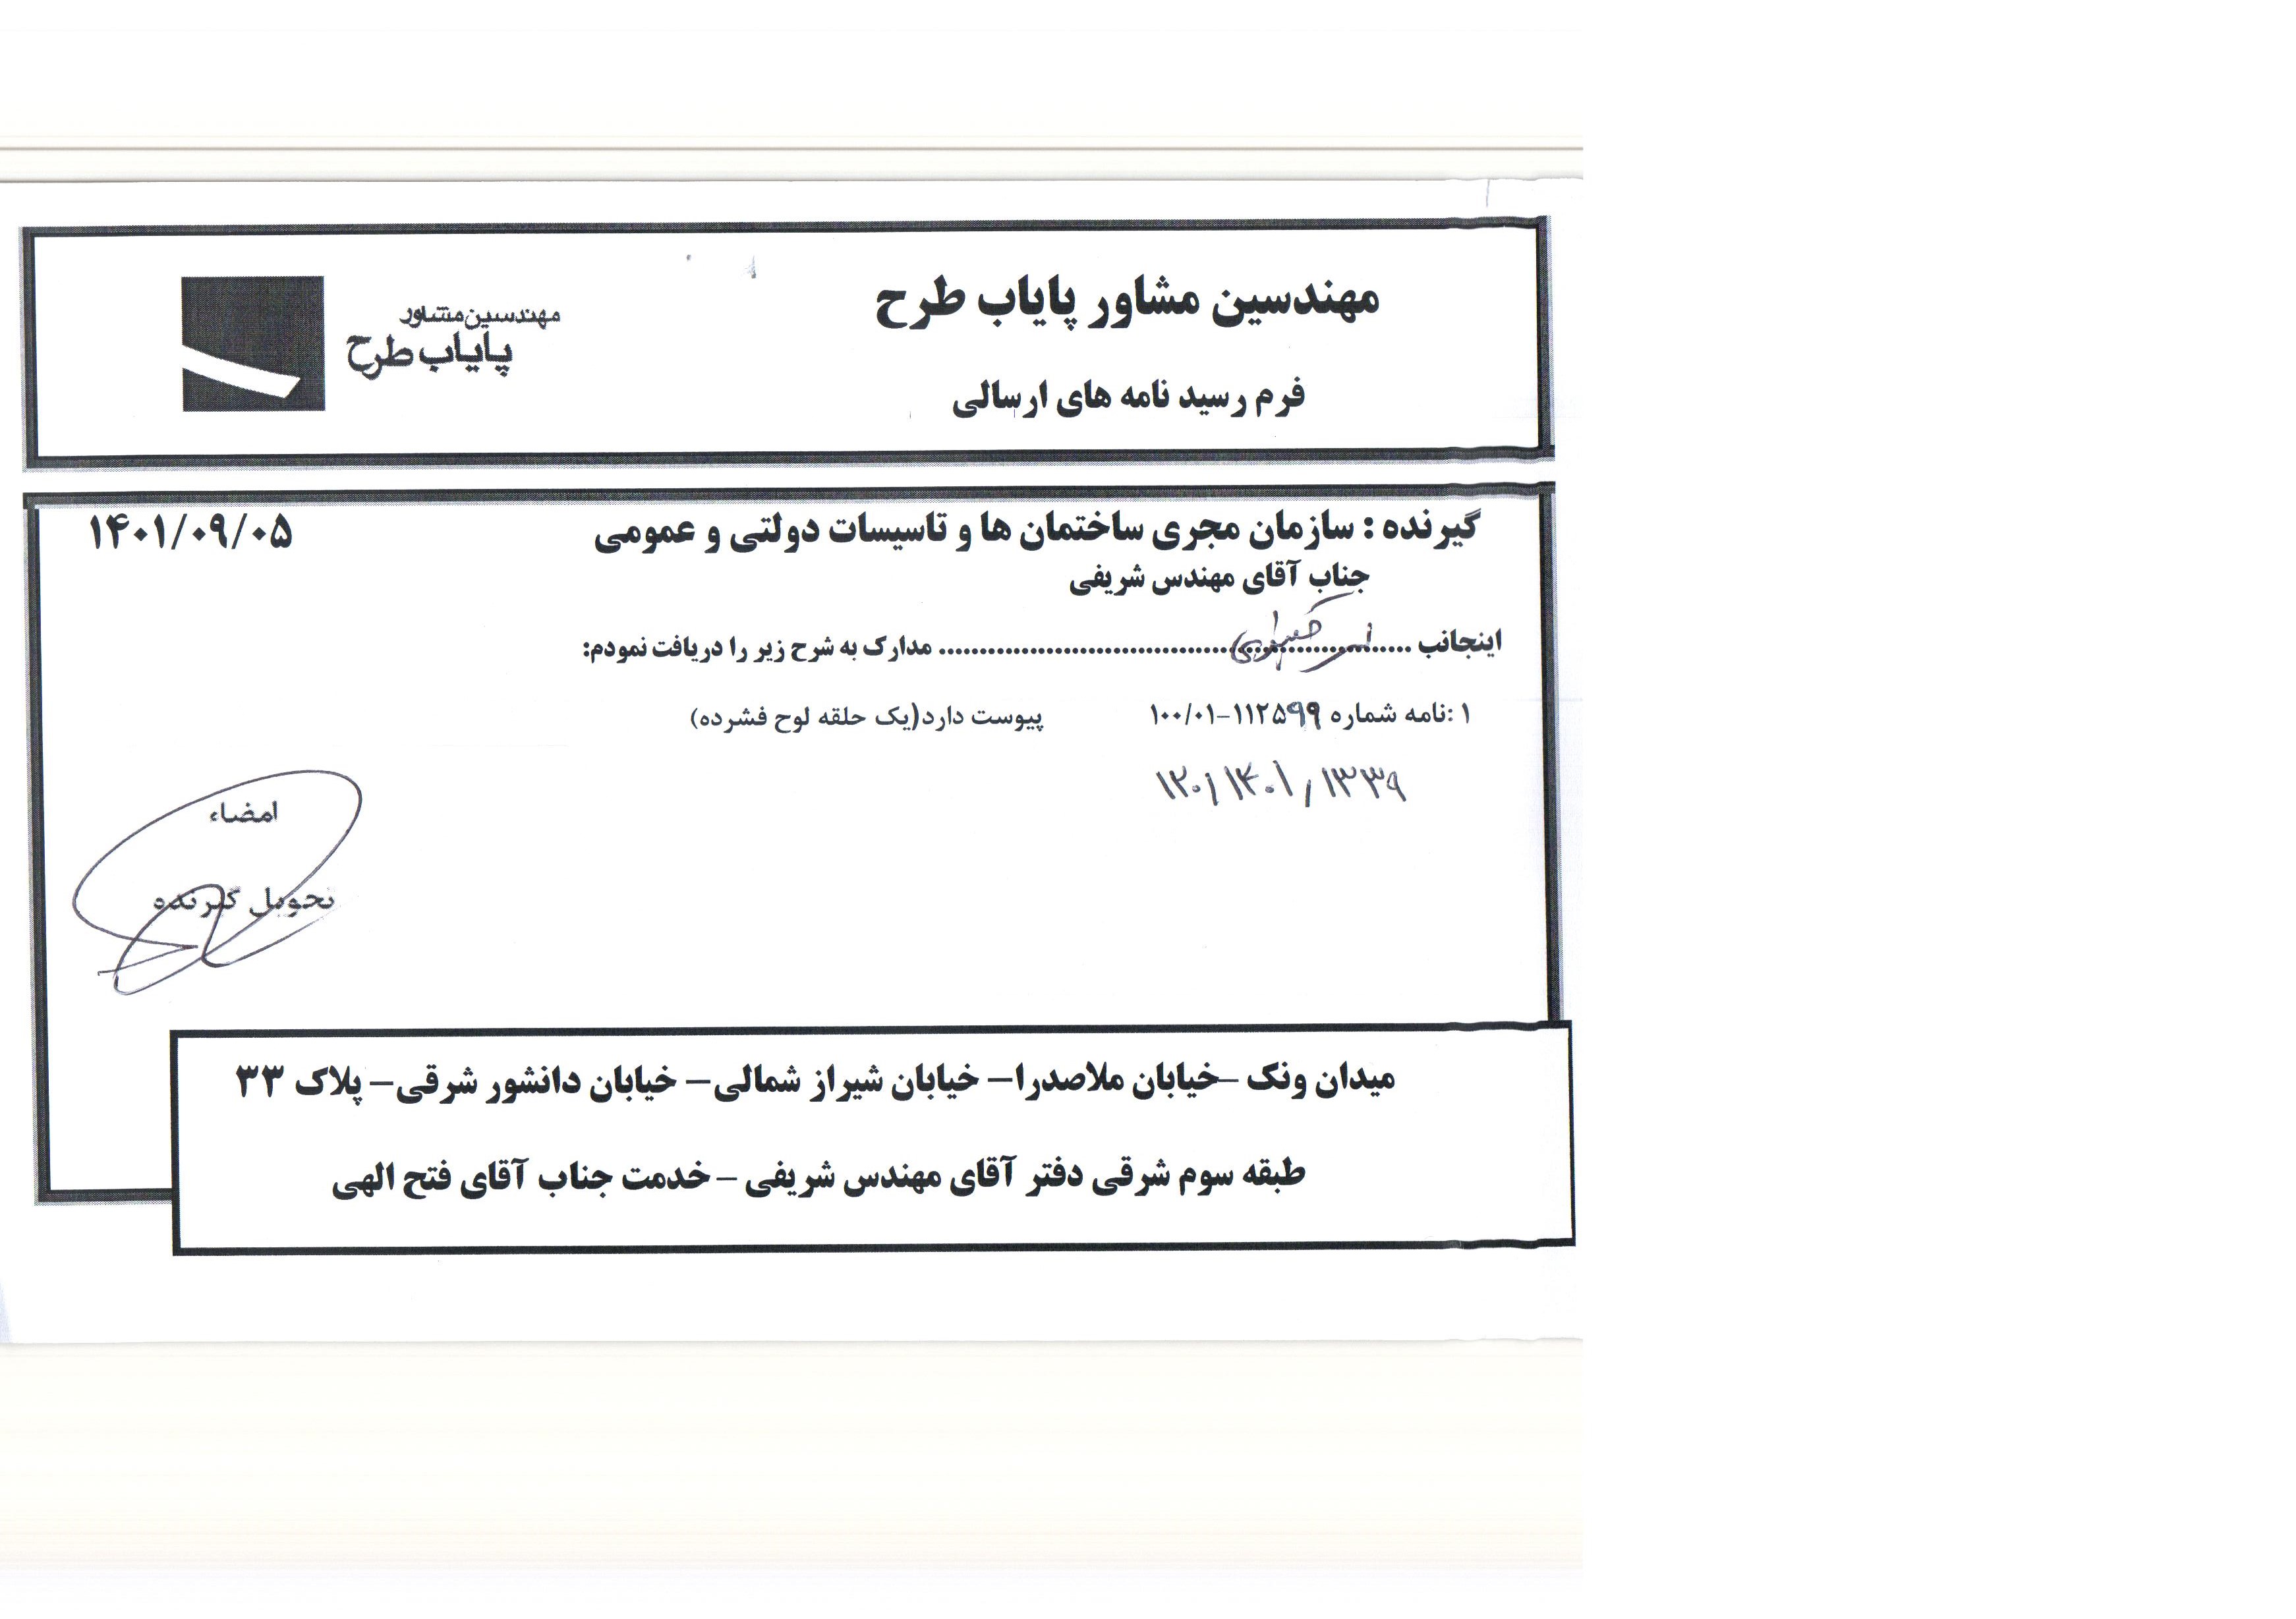 مهندسین مشاور پایاب طرح
مهندسین مشاور
پایاب طرح
فرم رسید نامه های ارسالی
گیرنده : سازمان مجری ساختمان ها و تاسیسات دولتی و عمومی
۱۴۰۱/۰۹/۰۵
جناب آقای مهندس شریفی
اینجانب .......................................................... مدارک به شرح زیر را دریافت نمودم:
۱ :نامه شماره ۱۰۰/۰۱-۱۱۲۵۹۹ پیوست دارد(یک حلقه لوح فشرده)
۱۲۰/۱۴۰۱/۱۳۳۹
امضاء
تحویل گیرنده
میدان ونک –خیابان ملاصدرا– خیابان شیراز شمالی– خیابان دانشور شرقی– پلاک ۳۳
طبقه سوم شرقی دفتر آقای مهندس شریفی – خدمت جناب آقای فتح الهی